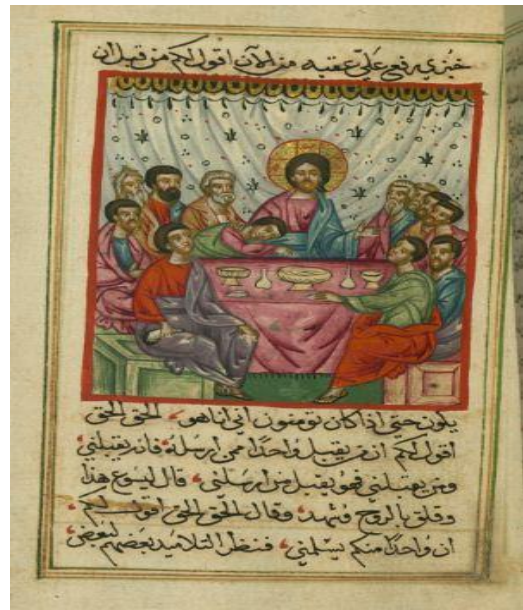 خبزي رفع عليّ عقبه من الآن اقول لكم من قبل ان
يكون حتى اذا كان تومنون انى اناهو، الحق الحق
اقول لكم ان من يقبل واحدًا ممن ارسله فانه يقبلني،
ومن يقبلني فهو يقبل من ارسلني، قال ليسوع هذا
وقلق بالروح وشهد، وقال الحق الحق اقول لكم،
ان واحدًا منكم يسلمني، فنظر التلاميذ بعضهم لبعض،